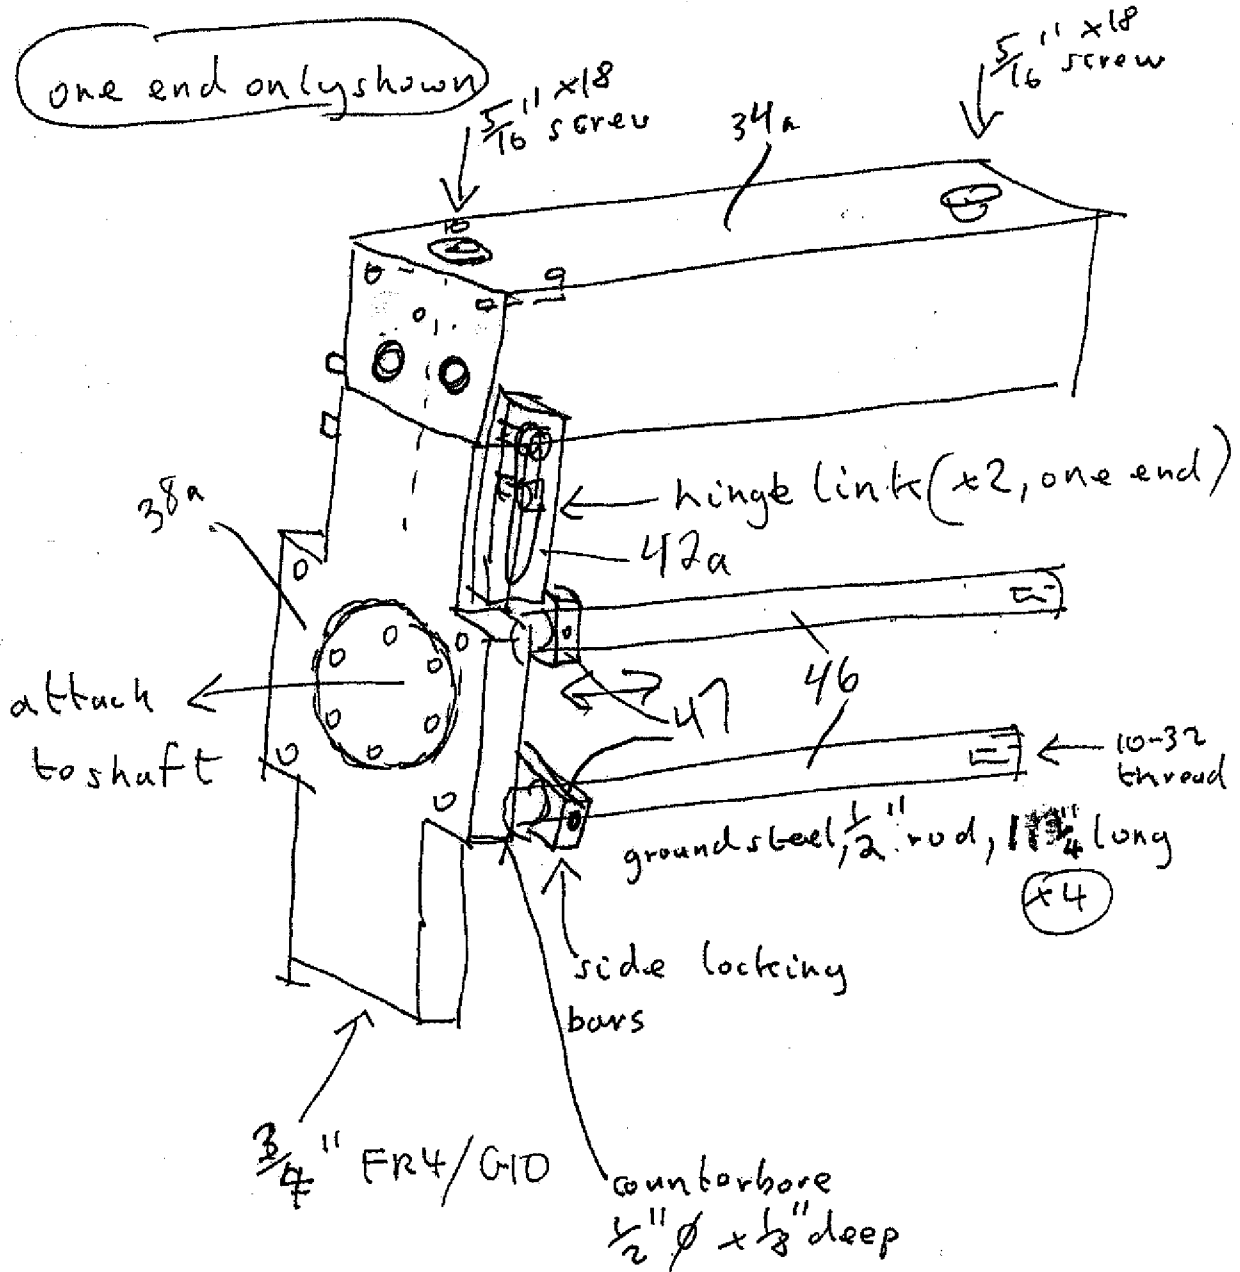 one end only shown
5/16" x18
screw
5/16" x18
screw
34a
38a
hinge link (x2, one end)
42a
attach
to shaft
47
46
10-32
thread
ground steel, 1/2" rod, long
x4
side locking
bars
3/4" FR4/G10
counterbore
1/2" ø x 1/8" deep